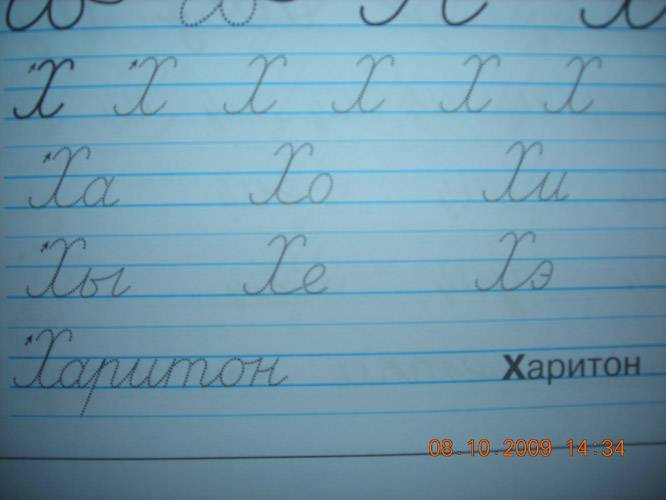 Х Х Х Х Х Х
Ха Хо Хи
Хы Хе Хэ
Харитон Харитон
08.10.2009 14:34